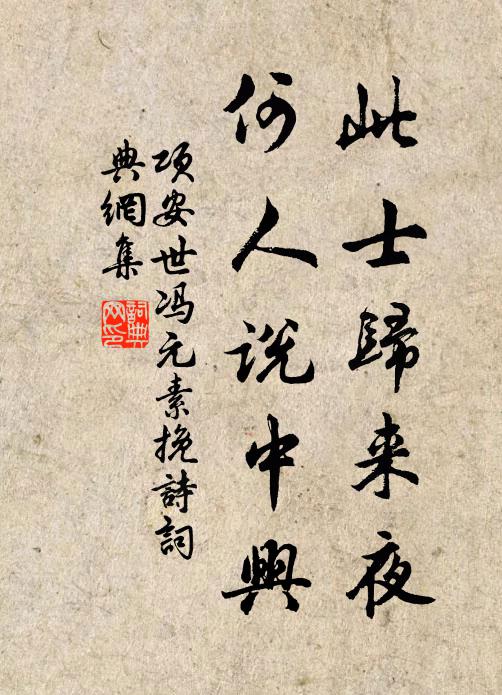 此士歸来夜
何人説中興
项安世冯元素挽詩詞
典網集
詞典
网印